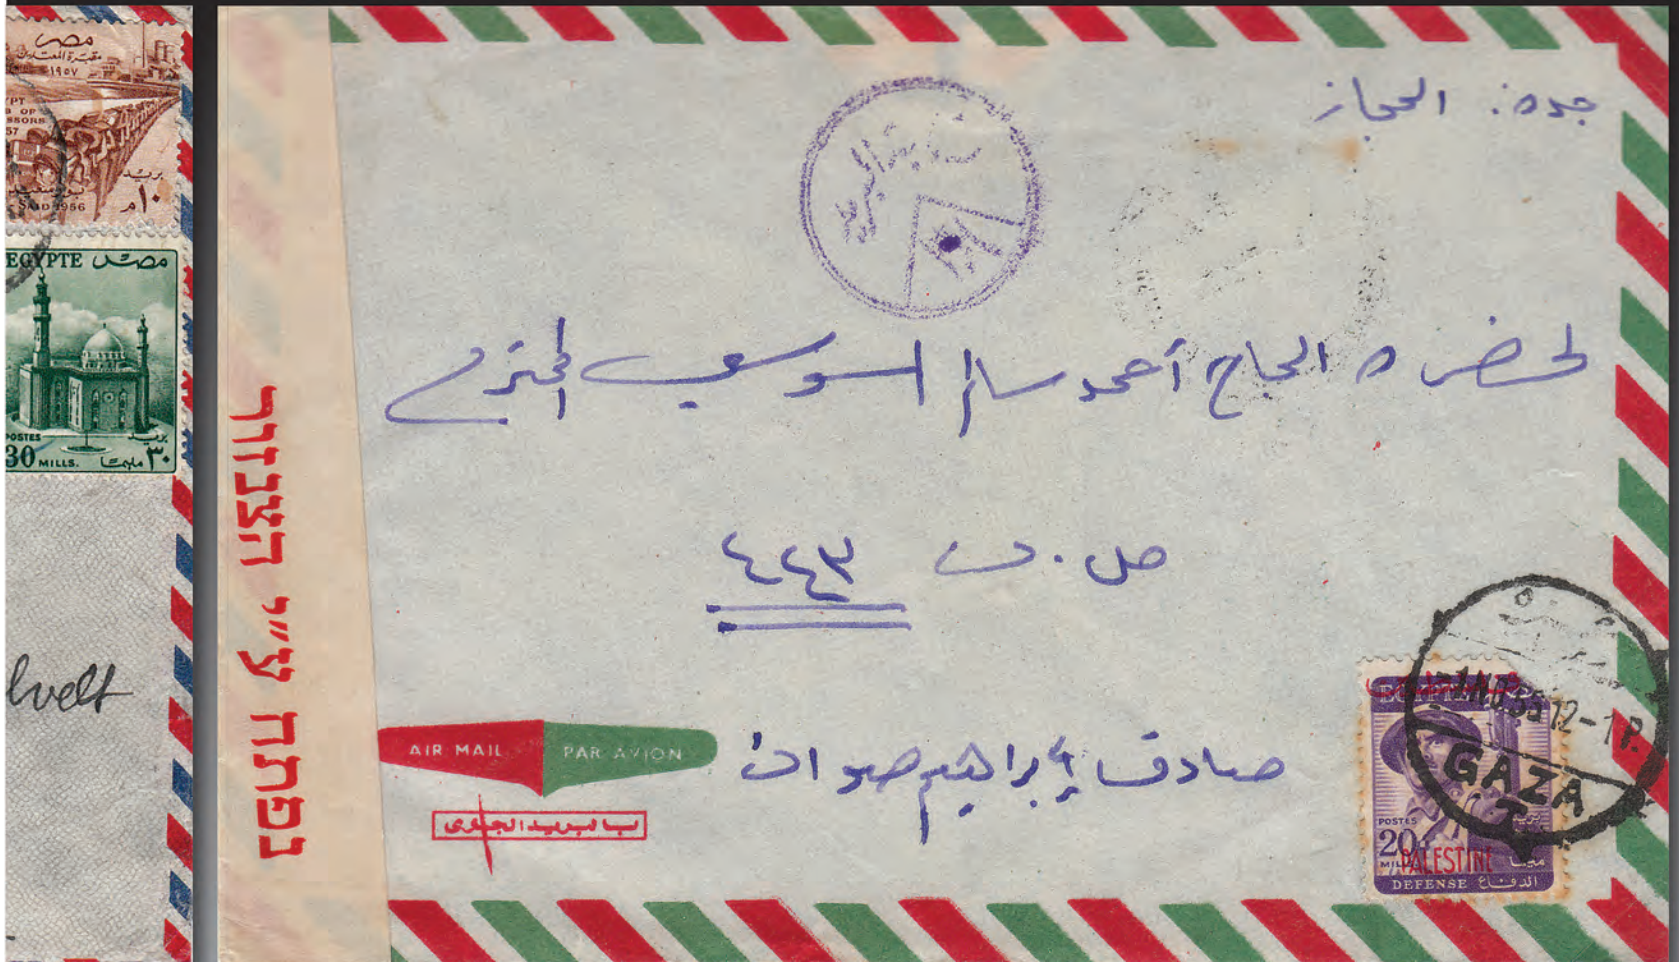 مصر
١٩٥٧
بريد
١٠م
SAID 1956
EGYPTE مصر
POSTES بريد
30 MILLS. ٣٠ مليما
lvelt
נפתח ע״י הצנזור
جده: الحجاز
لحضرة الحاج أحمد سالم السوسي المحترم
ص. ب ٤٤٣
AIR MAIL PAR AVION
بالبريد الجوى
صادق إبراهيم صوان
EGYPTE
12-1P.
GAZA
POSTES بريد
20 MILLS
PALESTINE
DEFENSE الدفاع